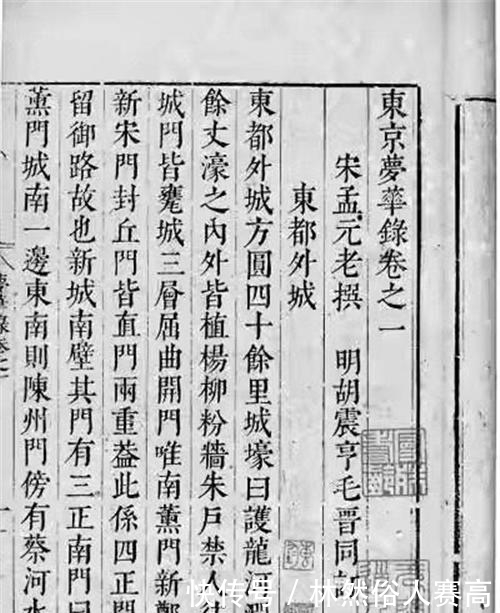 東京夢華錄卷之一
宋孟元老撰 明胡震亨毛晉同
東都外城
東都外城方圓四十餘里城壕曰護龍
餘丈濠之內外皆植楊柳粉牆朱戶禁人
城門皆甕城三層屈曲開門唯南薰門新鄭
新宋門封丘門皆直門兩重蓋此係四正門
留御路故也新城南壁其門有三正南門曰
薰門城南一邊東南則陳州門傍有蔡河水
快传号 / 林然俗人赛高